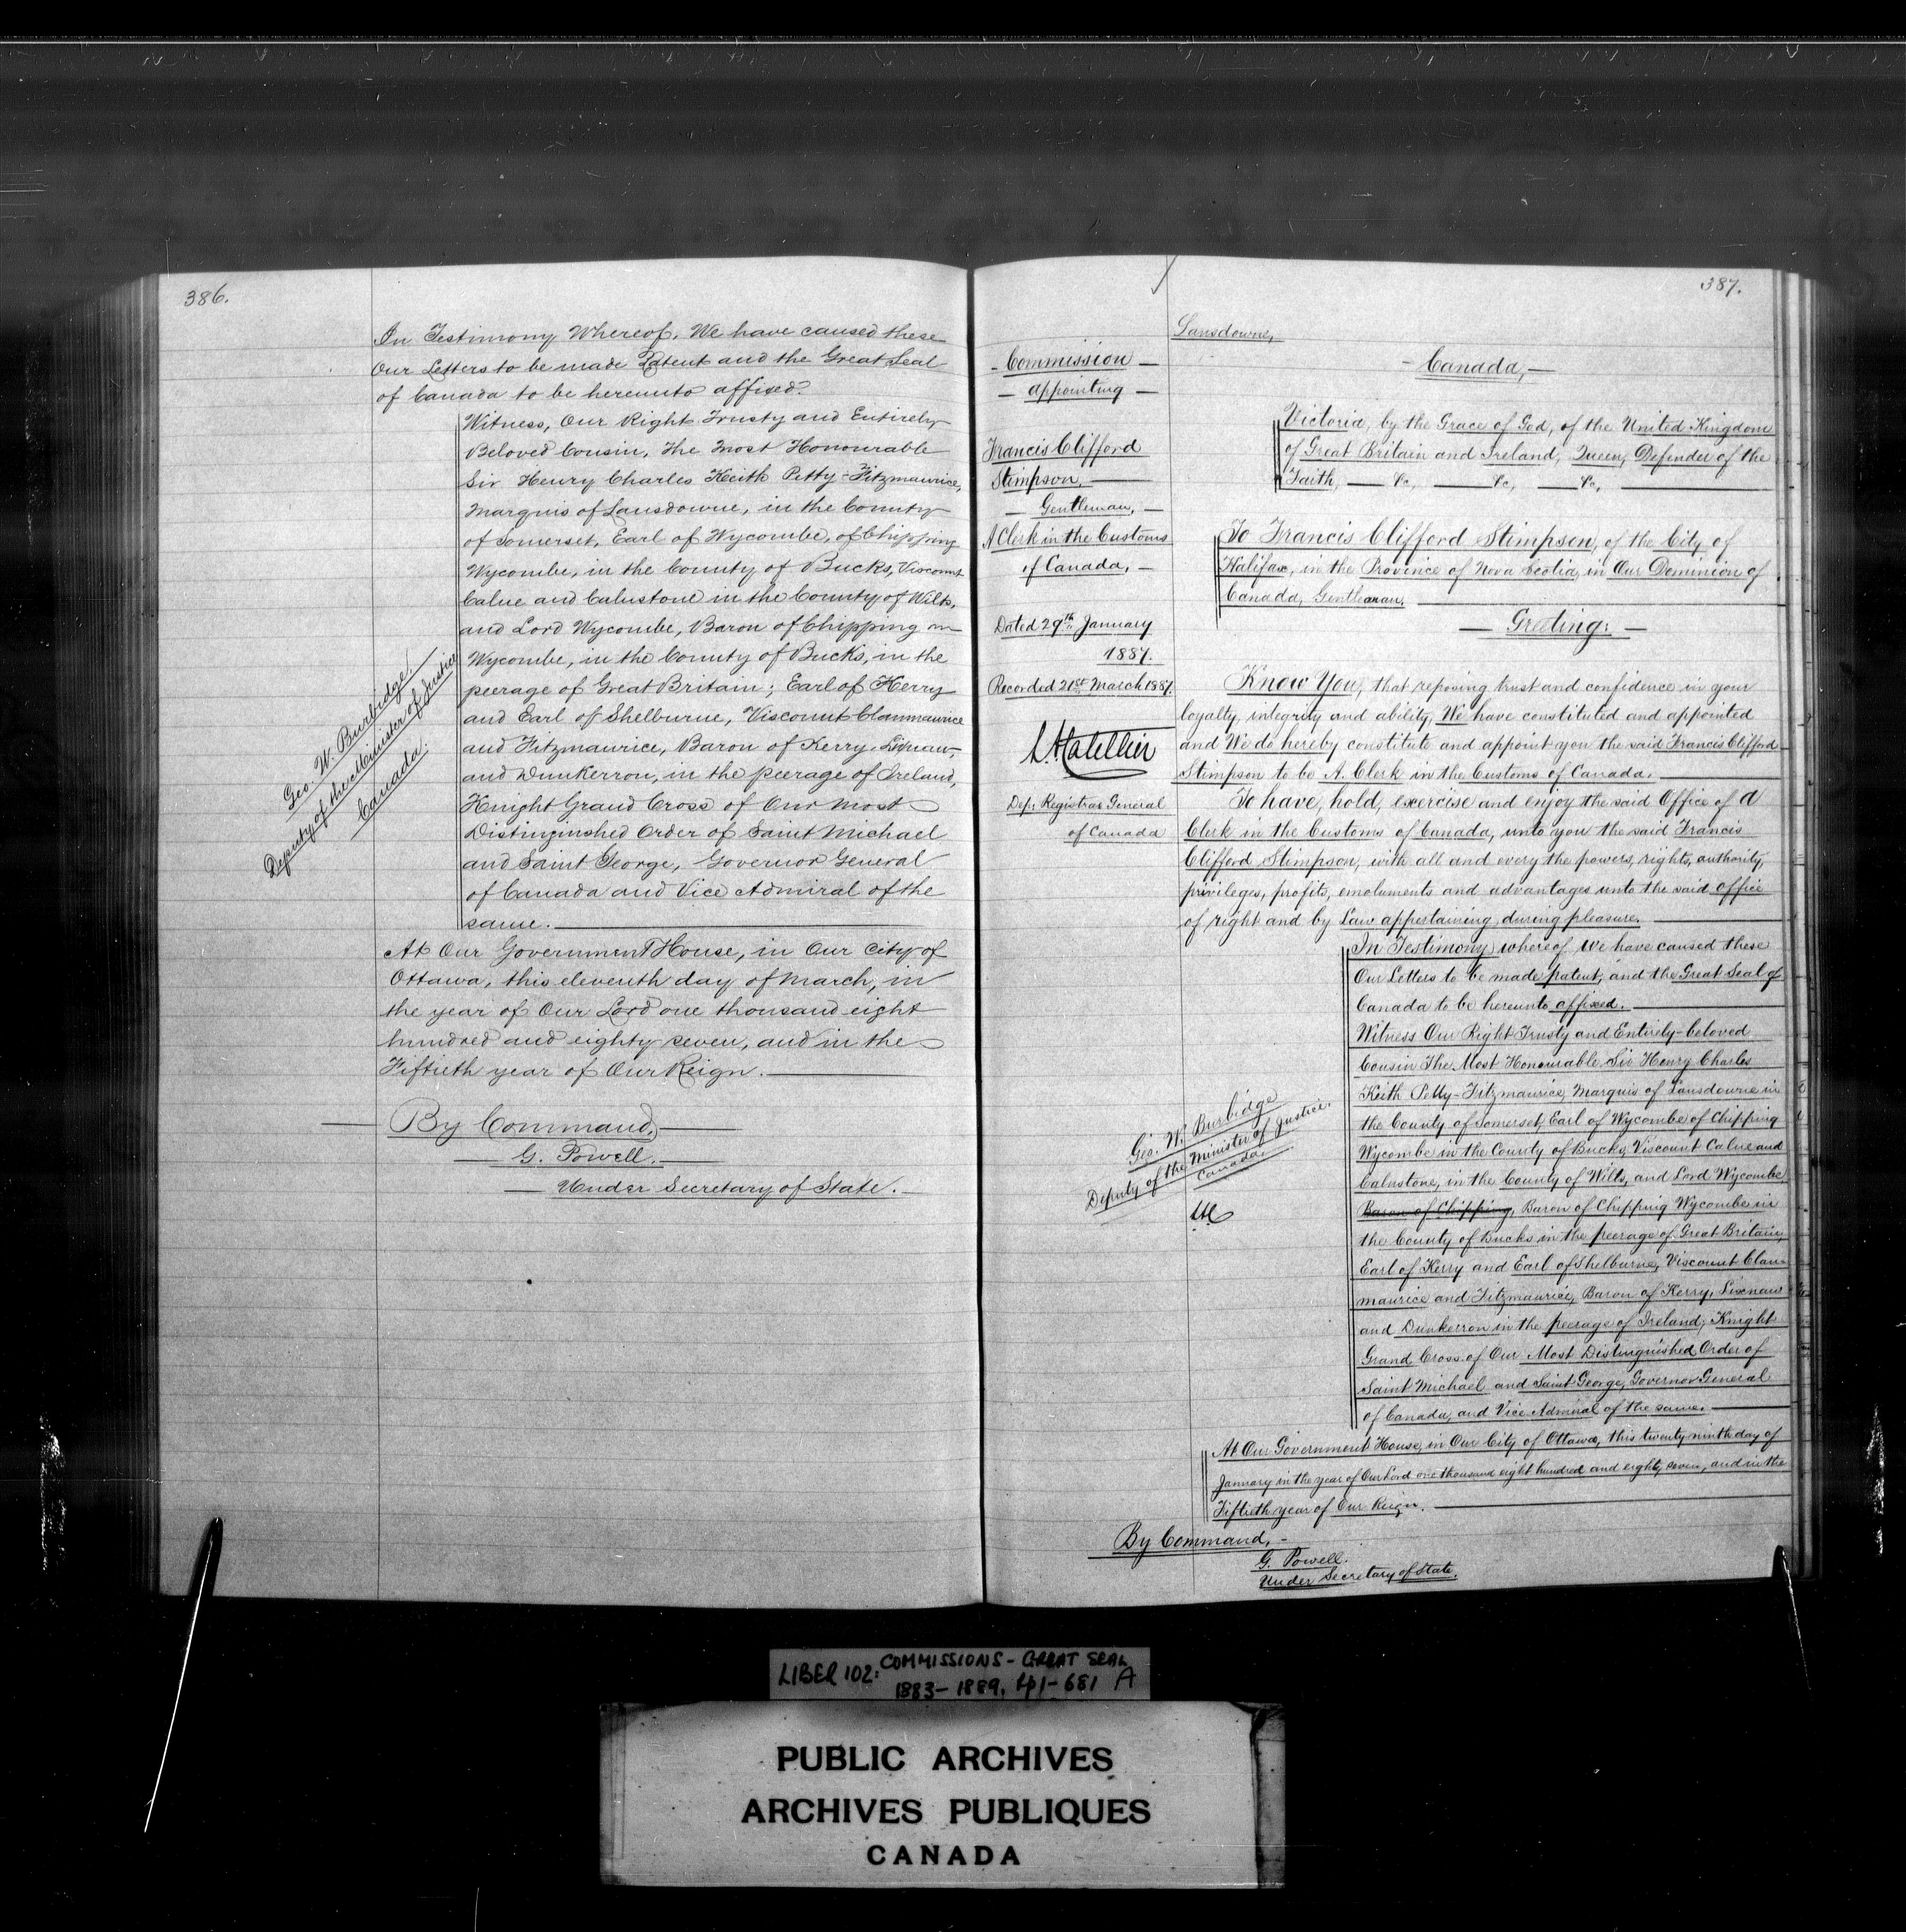 386.
In Testimony Whereof, We have caused these
Our Letters to be made Patent and the Great Seal
of Canada to be hereunto affixed.
Witness, Our Right Trusty and Entirely
Beloved Cousin, The Most Honourable
Sir Henry Charles Keith Petty-Fitzmaurice,
Marquis of Lansdowne, in the County
of Somerset, Earl of Wycombe, of Chipping
Wycombe, in the County of Bucks, Viscount
Calne and Calnstone in the County of Wilts,
and Lord Wycombe, Baron of Chipping
Wycombe, in the County of Bucks, in the
peerage of Great Britain; Earl of Kerry
and Earl of Shelburne, Viscount Clanmaurice
and Fitzmaurice, Baron of Kerry, Lixnaw,
and Dunkerron, in the peerage of Ireland,
Knight Grand Cross of Our Most
Distinguished Order of Saint Michael
and Saint George, Governor General
of Canada and Vice Admiral of the
same.
Geo. W. Burbidge
Deputy of the Minister of Justice
Canada.
At Our Government House, in Our City of
Ottawa, this eleventh day of March, in
the year of Our Lord one thousand eight
hundred and eighty seven, and in the
Fiftieth year of Our Reign.
By Command,
G. Powell.
Under Secretary of State.
387.
Commission
appointing
Francis Clifford
Stimpson,
Gentleman,
A Clerk in the Customs
of Canada,
Dated 29th January
1887.
Recorded 21st March 1887.
Dep: Registrar General
of Canada
Lansdowne,
Canada,
Victoria, by the Grace of God, of the United Kingdom
of Great Britain and Ireland, Queen, Defender of the
Faith, &c, &c, &c,
To Francis Clifford Stimpson, of the City of
Halifax, in the Province of Nova Scotia, in Our Dominion of
Canada, Gentleman,
Greeting:
Know You, that reposing trust and confidence in your
loyalty, integrity and ability, We have constituted and appointed
and We do hereby constitute and appoint you the said Francis Clifford
Stimpson to be A. Clerk in the Customs of Canada.
To have, hold, exercise and enjoy the said Office of a
Clerk in the Customs of Canada, unto you the said Francis
Clifford Stimpson, with all and every the powers, rights, authority,
privileges, profits, emoluments and advantages unto the said office
of right and by Law appertaining, during pleasure.
In Testimony whereof We have caused these
Our Letters to be made patent, and the Great Seal of
Canada to be hereunto affixed.
Witness Our Right Trusty and Entirely-beloved
Cousin The Most Honourable Sir Henry Charles
Keith Petty-Fitzmaurice, Marquis of Lansdowne in
the County of Somerset, Earl of Wycombe of Chipping
Wycombe in the County of Bucks, Viscount Calne and
Calnstone, in the County of Wilts, and Lord Wycombe,
Baron of Chipping, Baron of Chipping Wycombe in
the County of Bucks in the peerage of Great Britain,
Earl of Kerry and Earl of Shelburne, Viscount Clan-
maurice and Fitzmaurice, Baron of Kerry, Lixnaw
and Dunkerron in the peerage of Ireland; Knight
Grand Cross of Our Most Distinguished Order of
Saint Michael and Saint George, Governor General
of Canada, and Vice Admiral of the same.
Geo. W. Burbidge
Deputy of the Minister of Justice.
Canada,
At Our Government House, in Our City of Ottawa, this twenty ninth day of
January in the year of Our Lord one thousand eight hundred and eighty seven, and in the
Fiftieth year of Our Reign.
By Command,
G. Powell.
Under Secretary of State.
LIBER 102: COMMISSIONS - GREAT SEAL
1883-1889, pp1-681 A
PUBLIC ARCHIVES
ARCHIVES PUBLIQUES
CANADA